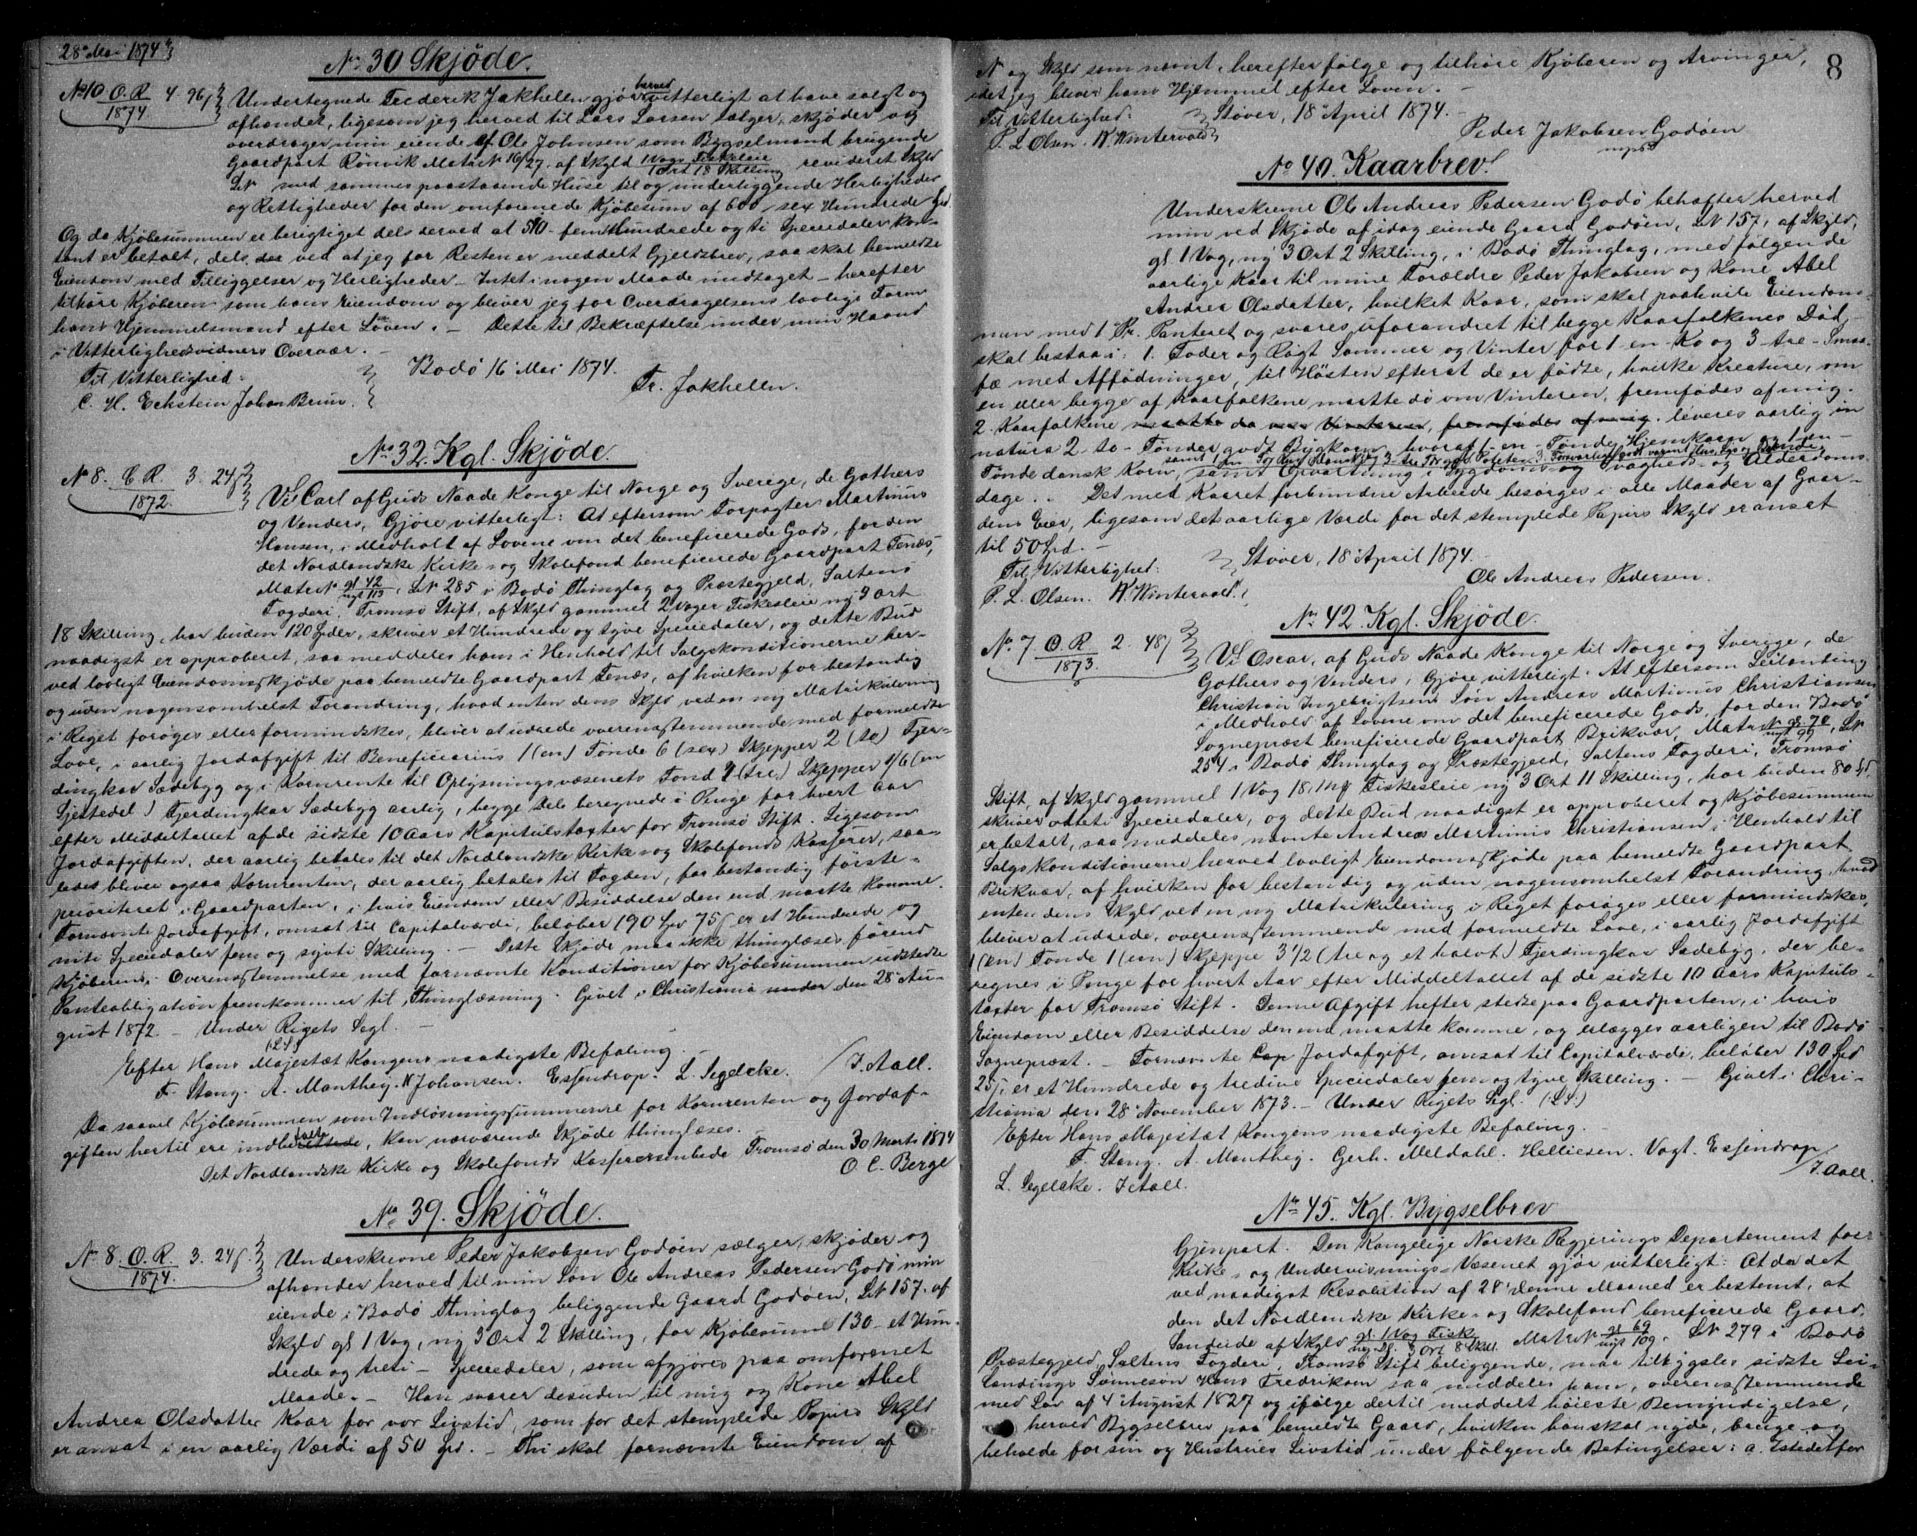 28de Mai 1874
No 30 Skjøde.
No 10 O.R. 4 96 s
1874
Undertegnede Frederik Jakhellen gjør herved vitterligt at have solgt og
afhændet, ligesom jeg herved til Lars Larsen sælger, skjøder og
overdrager min eiende af Ole Johnsen som Bygselmand brugende
Gaardpart Rønvik Matr N 16/27. af Skyld 1 Vog Fiskeleie revideret Skyld
1 Ort 18 Skilling
LN med sammes paastaaende Huse til og underliggende Herligheder
og Rettigheder for den omforenede Kjøbesum af 600, sex Hundrede Spd.
Og da Kjøbesummen er berigtiget dels derved at 510 - fem Hundrede og ti Speciedaler kon-
tant er betalt, dels ved at jeg for Resten er meddelt Gjeldsbrev, saa skal bemeldte
Eiendom med Tilliggelser og Herligheder - Intet i nogen Maade undtaget - herefter
tilhøre Kjøberen som hans Eiendom og bliver jeg for Overdragelsens lovlige Form
hans Hjemmelsmand efter Loven. - Dette til Bekræftelse under min Haand
i Vitterlighedsvidners Overvær. -
Bodø 16 Mai 1874.
Til Vitterlighed:
Fr. Jakhellen.
C. H. Eckstein Johan Bruun.
No 32. Kgl. Skjøde.
No 8. C.R. 3. 24 s
1872.
Vi Carl af Guds Naade Konge til Norge og Sverige, de Gothers
og Venders, Gjøre vitterligt: At eftersom Forpagter Martinus
Hansen, i Medhold af Lovene om det beneficerede Gods, for den
det Nordlandske Kirke- og Skolefond beneficerede Gaardpart Fenæs,
Matr N gl 42 nyt 113, LN 285 i Bodø Thinglag og Præstegjeld, Saltens
Fogderi, Tromsø Stift, af Skyld gammel 2 Voger Fiskesleie ny 3 ort
18 Skilling, har buden 120 Spdlr, skriver et Hundrede og tyve Speciedaler, og dette Bud
naadigst er approberet, saa meddeles ham i Henhold til Salgskonditionerne her-
ved lovligt Eiendomsskjøde paa bemeldte Gaardpart Fenæs, af hvilken for bestandig
og uden nogensomhelst Forandring, hvad enten dens Skyld ved en ny Matrikulering
i Riget forøges eller formindskes, bliver at udrede overensstemmende med formeldte
Love, i aarlig Jordafgift til Beneficiarius 1 (en) Tønde 6 (sex) Skjepper 2 (to) Fjer-
dingkar Sædebyg og i Kornrente til Oplysningsvæsenets Fond 3 (tre) Skjepper 1/6 (en
Sjettedel) Fjerdingkar Sædebyg aarlig, begge Dele beregnede i Penge for hvert Aar
efter Middeltallet af de sidste 10 Aars Kapitulstaxter for Tromsø Stift. Ligesom
Jordafgiften, der aarlig betales til det Nordlandske Kirke- og Skolefonds Kasserer, saa-
ledes bliver ogsaa Kornrenten, der aarlig betales til Fogden, for bestandig første-
prioriteret i Gaardparten, i hvis Eiendom eller Besiddelse den end maatte komme.
Fornævnte Jordafgift, omsat til Capitalværdi, beløber 190 Spd 75 s, er et Hundrede og
niti Speciedaler fem og sytti Skilling. - Dette Skjøde maa ikke thinglæses førend
Kjøberens, i Overensstemmelse med fornævnte Konditioner for Kjøbesummen udstedte
Panteobligation fremkommer til Thinglæsning. Givet i Christiania den 28 Au-
gust 1872 - Under Rigets Segl. -
(L.S.)
Efter Hans Majestæt Kongens naadigste Befaling. -
F. Stang. A. Manthey. N Johansen. Essendrop. L. Segelcke. / J. Aall.
Da saavel Kjøbesummen som Indløsningssummerne for Kornrenten og Jordaf-
giften hertil ere indbetalte, kan nærværende Skjøde thinglæses.
Det Nordlandske Kirke og Skolefonds Kassererembede Tromsø den 30 Marts 1874
O. C. Berge
No 39. Skjøde.
No 8. O.R. 3. 24 s.
1874.
Underskrevne Peder Jakobsen Godøen sælger, skjøder og
afhænder herved til min Søn Ole Andreas Pedersen Godø min
eiende i Bodø Thinglag beliggende Gaard Godøen, LN 157. af
Skyld gl 1 Vog, ny 3 Ort 2 Skilling, for Kjøbesum 130 - et Hun-
drede og treti - Speciedaler, som afgjøres paa omforenet
Maade. - Han svarer desuden til mig og Kone Abel
Andrea Olsdatter Kaar for vor Livstid, som for det stemplede Papirs Skyld
er ansat i en aarlig Værdi af 50 Spd. - Thi skal fornævnte Eiendom af
8
N og Skyld som nævnt, herefter følge og tilhøre Kjøberen og Arvinger,
idet jeg bliver hans Hjemmel efter Loven. -
Til Vitterlighed:
Støver, 18 April 1874.
P. L. Olsen. W. Wintervold
Peder Jakobsen Godøen
mps
No 40. Kaarbrev.
Underskrevne Ole Andreas Pedersen Godø behæfter herved
min ved Skjøde af idag eiende Gaard Godøen, LN 157, af Skyld,
gl 1 Vog, ny 3 Ort 2 Skilling, i Bodø Thinglag, med følgende
aarlige Kaar til mine Forældre Peder Jakobsen og Kone Abel
Andrea Olsdatter, hvilket Kaar, som skal paahvile Eiendom-
men med 1 Pr. Panteret og svares uforandret til begge Kaarfolkenes Død, -
skal bestaa i: 1. Foder og Røgt Sommer og Vinter for 1 - en - Ko og 3 - tre - Smaa-
fæ med Afføddninger, til Høsten efterat de er fødte, hvilke Kreature, om
en eller begge af Kaarfolkene maatte dø om Vinteren, fremfødes af mig.
2. Kaarfolkene maatte dø om Vinteren, fremfødes af mig. leveres aarlig in
natura 2 - to - Tønder godt Bygkorn, hvoraf 1 - en - Tønde Hjemkorn 1 - en -
Tønde dansk Korn, samt Opvartning i Sygdom- og Svagheds- og Alderdoms-
dage. . Det med Kaaret forbundne Arbeide besørges i alle Maader af Gaar-
dens Eier, ligesom det aarlige Værdi for det stemplede Papirs Skyld er ansat
til 50 Spd. -
Støver, 18 April 1874.
Til Vitterlighed:
Ole Andreas Pedersen.
P. L. Olsen. W. Wintervold.
No 42. Kgl. Skjøde.
No 7 O.R. 2 48 s
1873.
Vi Oscar, af Guds Naade Konge til Norge og Sverige, de
Gothers og Venders, Gjøre vitterligt: At eftersom Leilending
Christian Ingebrigtsens Søn Andreas Martinus Christiansen
i Medhold af Lovene om det beneficerede Gods, for den Bodø
Sognepræst beneficerede Gaardpart Brikvær, Matr N gl 70 nyt 99, LN
254 i Bodø Thinglag og Præstegjeld, Saltens Fogderi, Tromsø
Stift, af Skyld gammel 1 Vog 18 Fiskesleie ny 3 Ort 11 Skilling, har buden 80 Spd,
skriver otteti Speciedaler, og dette Bud naadigst er approberet og Kjøbesummen
er betalt, saa meddeles nævnte Andreas Martinus Christiansen i Henhold til
Salgskonditionerne herved lovligt Eiendomsskjøde paa bemeldte Gaardpart
Brikvær, af hvilken for bestandig og uden nogensomhelst Forandring, hvad
enten dens Skyld ved en ny Matrikulering i Riget forøges eller formindskes,
bliver at udrede, overensstemmende med formeldte Love, i aarlig Jordafgift
1 (en) Tønde 1 (een) Skjeppe 3 1/2 (tre og et halvt) Fjerdingkar Sædebyg, der be-
regnes i Penge for hvert Aar efter Middeltallet af de sidste 10 Aars Kapituls-
taxter for Tromsø Stift. Denne Afgift hefter stedse paa Gaardparten, i hvis
Eiendom eller Besiddelse den end maatte komme, og erlægges aarligen til Bodø
Sognepræst. - Fornævnte Cap Jordafgift, omsat til Capitalværdi, beløber 130 Spd
25 s, er et Hundrede og tredive Speciedaler fem og tyve Skilling. - Givet i Chri-
stiania den 28 November 1873. - Under Rigets Segl. (L.S.)
Efter Hans Majestæt Kongens naadigste Befaling. -
F. Stang. A. Manthey. Gerh. Meldahl. Helliesen. Vogt. Essendrop
L. Segelcke. J. Aall. / J. Aall.
No 45. Kgl. Bygselbrev
Gjenpart. Den Kongelige Norske Regjerings Departement for
Kirke- og Undervisnings-Væsenet gjør vitterligt: At da det
ved naadigst Resolution af 24 denne Maaned er bestemt, at
den det Nordlandske Kirke- og Skolefond beneficerede Gaard
Sandeide af Skyld gl. 1 Vog Fisk ny Dl. 3 Ort 8 Skil. Matr N gl 69 nyt 109. LN 279 i Bodø
Præstegjeld, Saltens Fogderi, Tromsø Stift beliggende, maa tilbygsles sidste Lei-
lendings Sønnesøn Hans Fredriksen saa meddeles ham, overensstemmende
med Lov af 4 August 1827 og ifølge dertil meddelt høieste Bemyndigelse,
herved Bygselbrev paa bemeldte Gaard, hvilken han skal nyde, bruge og
beholde for sin og Hustrues Livstid under følgende Betingelser: a. Istedetfor